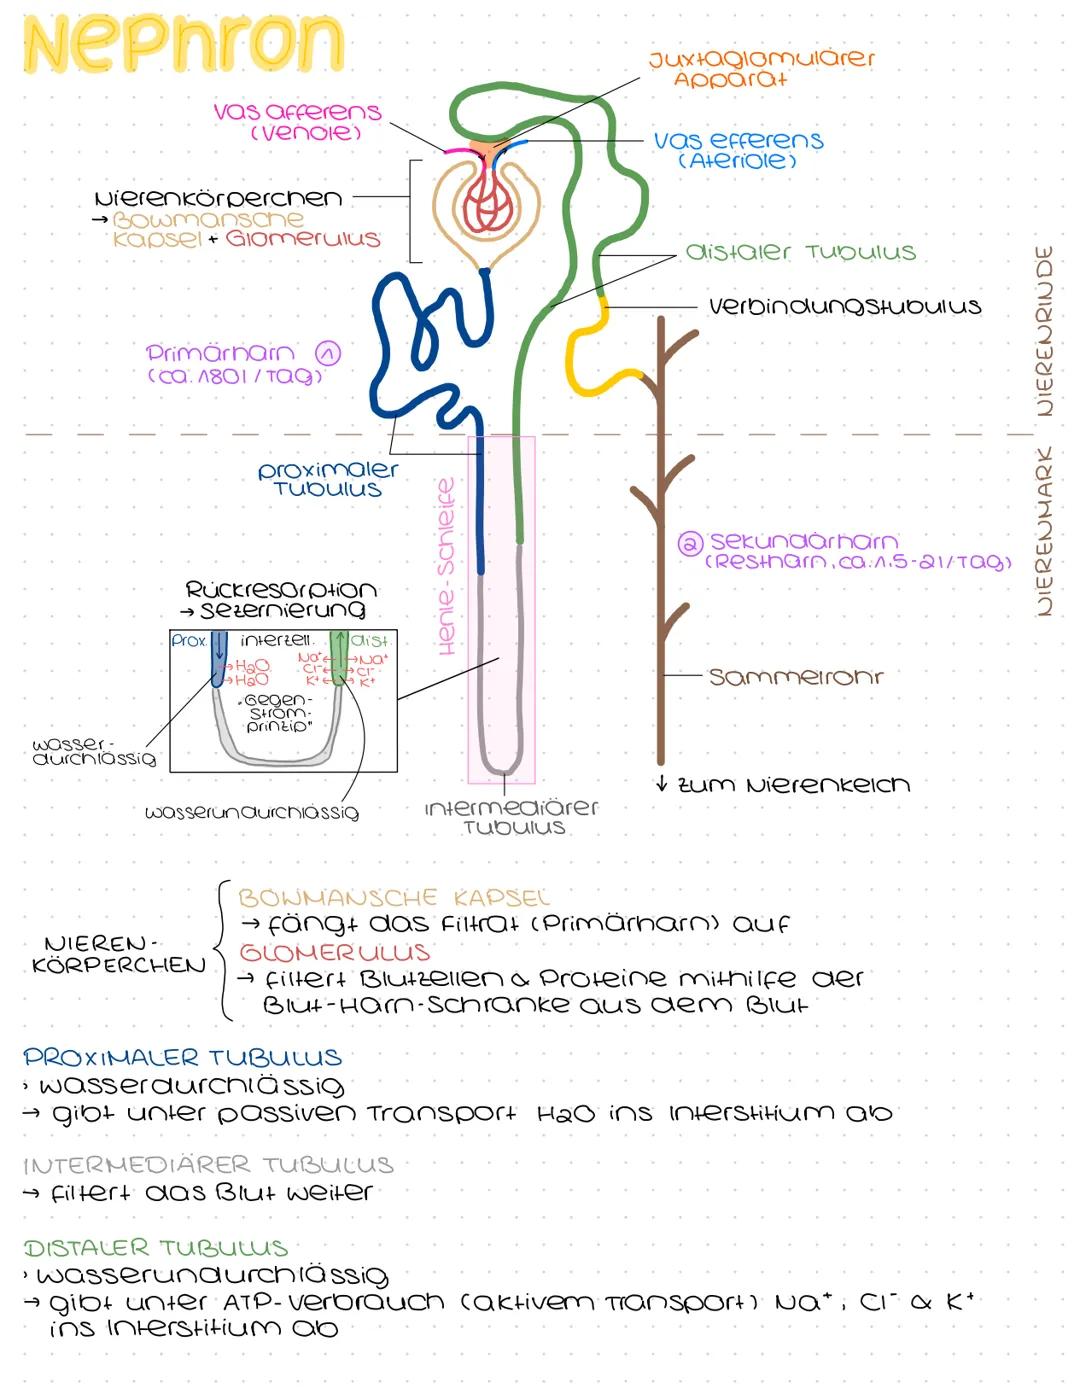 Nephron
Juxtaglomulärer
Apparat
Vas afferens
(Venole)
Vas efferens
(Ateriole)
Nierenkörperchen
→ Bowmansche
Kapsel + Glomerulus
distaler Tubulus
Verbindungstubulus
NIERENRINDE
Primärharn ①
(ca. 180l / Tag)
proximaler
Tubulus
Henle-Schleife
NIERENMARK
② Sekundärharn
(Restharn, ca. 1,5-2l / Tag)
Rückresorption
→ Sezernierung
Prox. interzell. dist.
Na⁺ ← → Na⁺
→ H₂O Cl⁻ ← → Cl⁻
→ H₂O K⁺ ← → K⁺
„Gegen-
strom-
prinzip"
Sammelrohr
wasser-
durchlässig
wasserundurchlässig
↓ zum Nierenkelch
intermediärer
Tubulus
NIEREN-
KÖRPERCHEN
BOWMANSCHE KAPSEL
→ fängt das Filtrat (Primärharn) auf
GLOMERULUS
→ filtert Blutzellen & Proteine mithilfe der
Blut-Harn-Schranke aus dem Blut
PROXIMALER TUBULUS
› wasserdurchlässig
→ gibt unter passiven Transport H2O ins Interstitium ab
INTERMEDIÄRER TUBULUS
→ filtert das Blut weiter
DISTALER TUBULUS
› wasserundurchlässig
→ gibt unter ATP-Verbrauch (aktivem Transport) Na⁺, Cl⁻ & K⁺
ins Interstitium ab